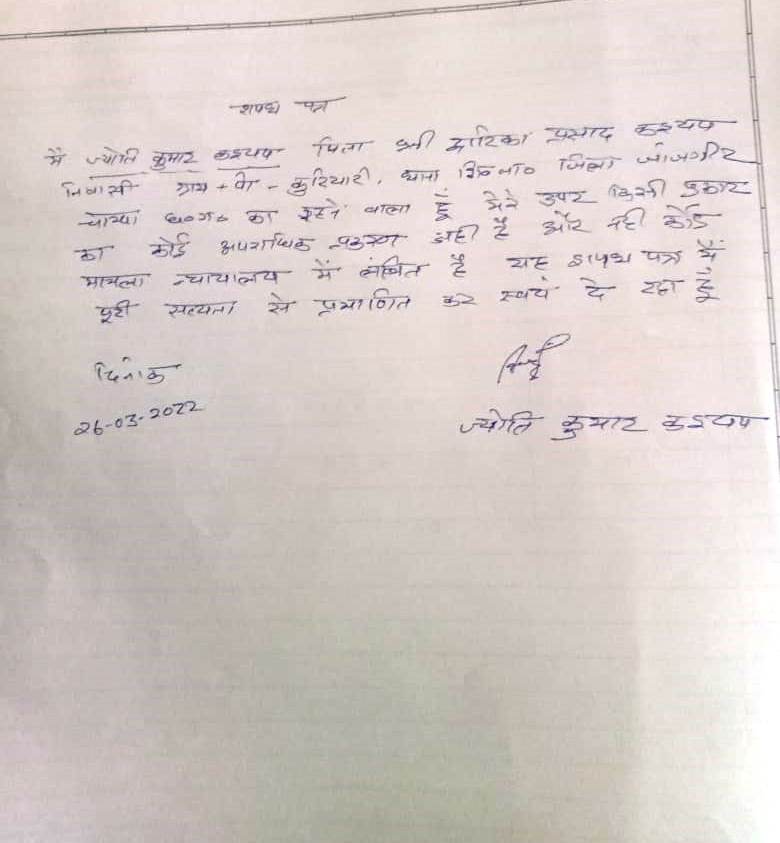 शपथ पत्र
मैं ज्योति कुमार कश्यप पिता श्री द्वारिका प्रसाद कश्यप
निवासी ग्राम + पो - कुरियारी, थाना शि०ना० जिला जांजगीर
चाम्पा छ०ग० का रहने वाला हूँ मेरे उपर किसी प्रकार
का कोई अपराधिक प्रकरण नहीं है और नही कोई
मामला न्यायालय में लंबित है यह शपथ पत्र मैं
पूरी सत्यता से प्रमाणित कर स्वयं दे रहा हूँ
दिनांक
26-03-2022
ज्योति कुमार कश्यप